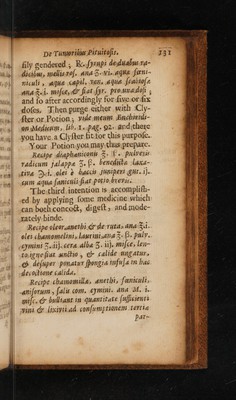 De Tumoribus Pituitosis. 131
sily gendered; ℞. syrupi de duabus ra-
dicibus, mellis ros. ana ℥. vi. aqua fœni-
niculi, aqua capol. ven. aqua scabiosa
ana ℥. i. misce, & fiat syr. pro una dosi;
and so after accordingly for five or six
doses. Then purge either with Cly-
ster or Potion; vide meum Enchiridi-
on Medicum. lib. 1. pag. 92. and there
you have a Clyster fit for this purpose.
Your Potion you may thus prepare.
Recipe diaphœniconis ℥. ß. pulveris
radicum jalappa ℥. ß. benedicta laxa-
tiva ʒ. i. olei è baccis juniperi gut. ij.
cum aqua fœniculi fiat potio brevis.
The third intention is accomplish-
ed by applying some medicine which
can both concoct, digest, and mode-
rately binde.
Recipe oleor. anethi & de ruta. ana ℥. i.
oleo chamomelini, laurini ana ℥. ß. pulv.
cymini ℥. ij. cera alba ℥. ij. misce, len-
to igne fiat unctio, & calide ungatur,
& desuper ponatur spongia infusa in hac
decoctione calida.
Recipe chamomilla, anethi, fœniculi,
anisorum, salis com. cymini. ana M. i.
misc. & bulliant in quantitate sufficienti
vini & lixivii ad consumptionem tertia
par-